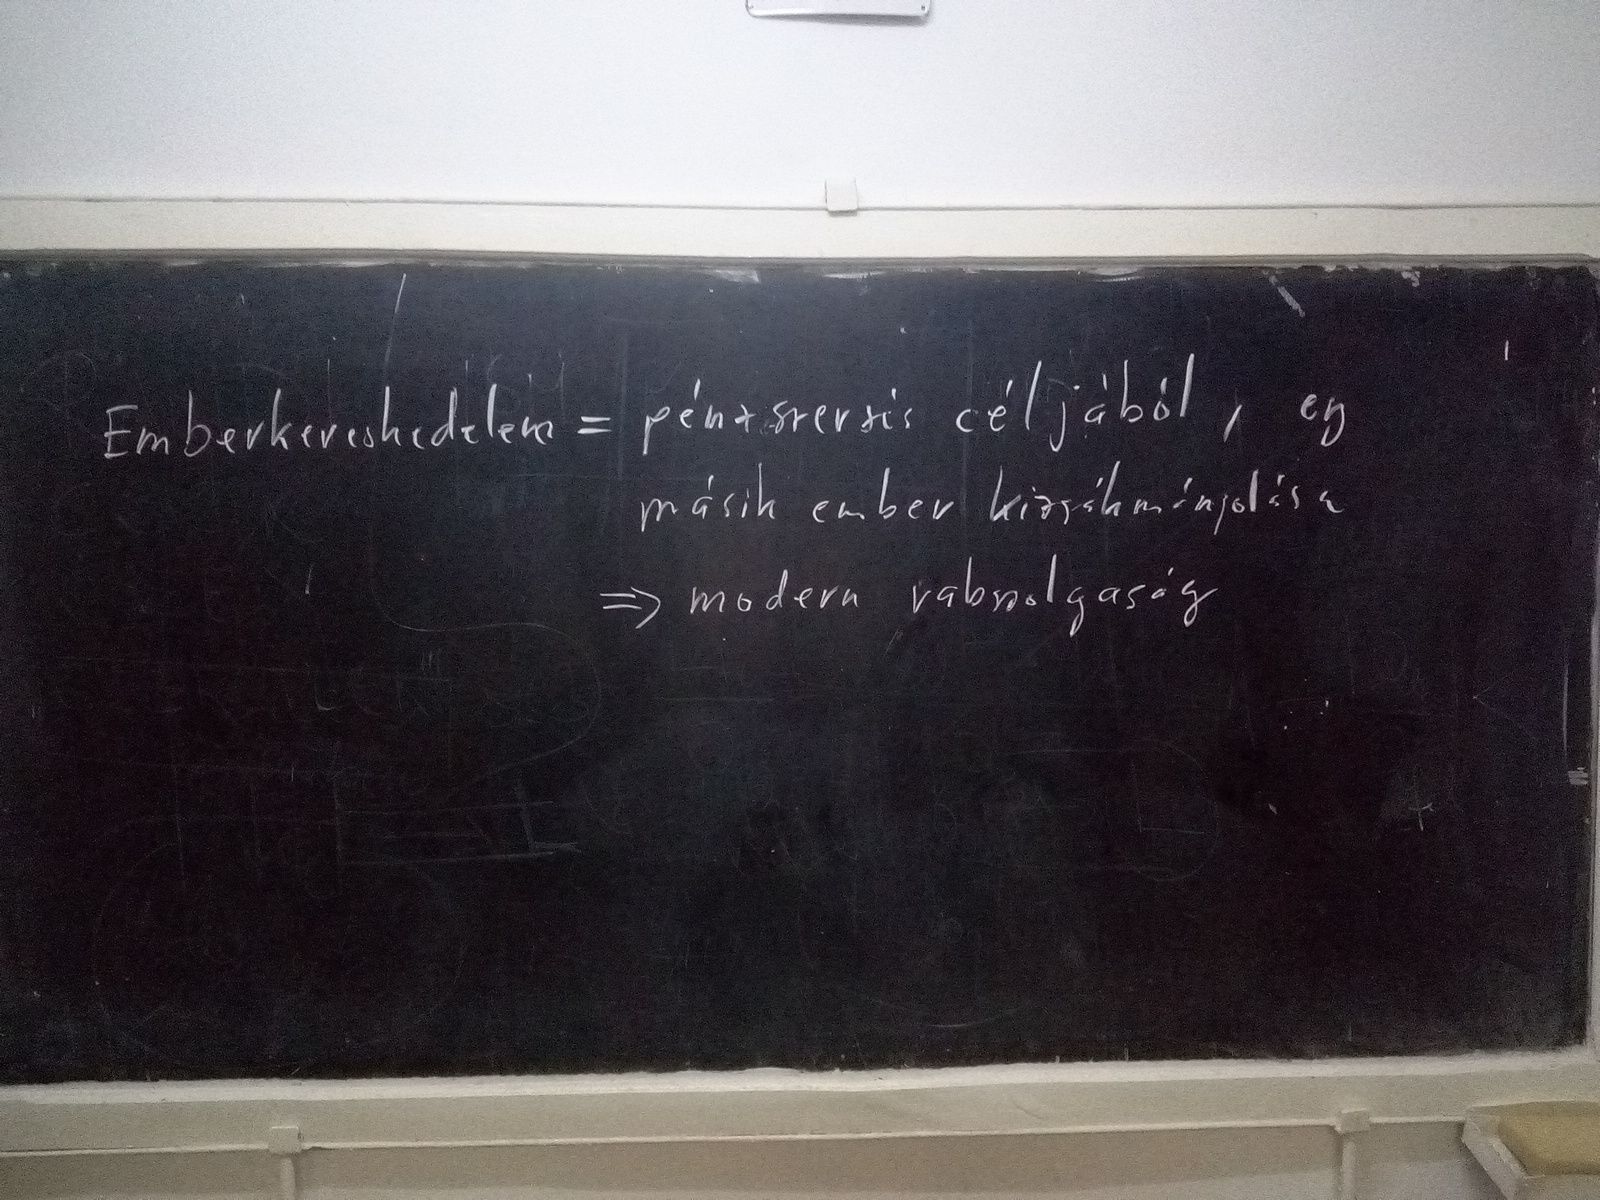 Emberkereskedelem = pénzszerzés céljából, egy
másik ember kizsákmányolása
⇒ modern rabszolgaság